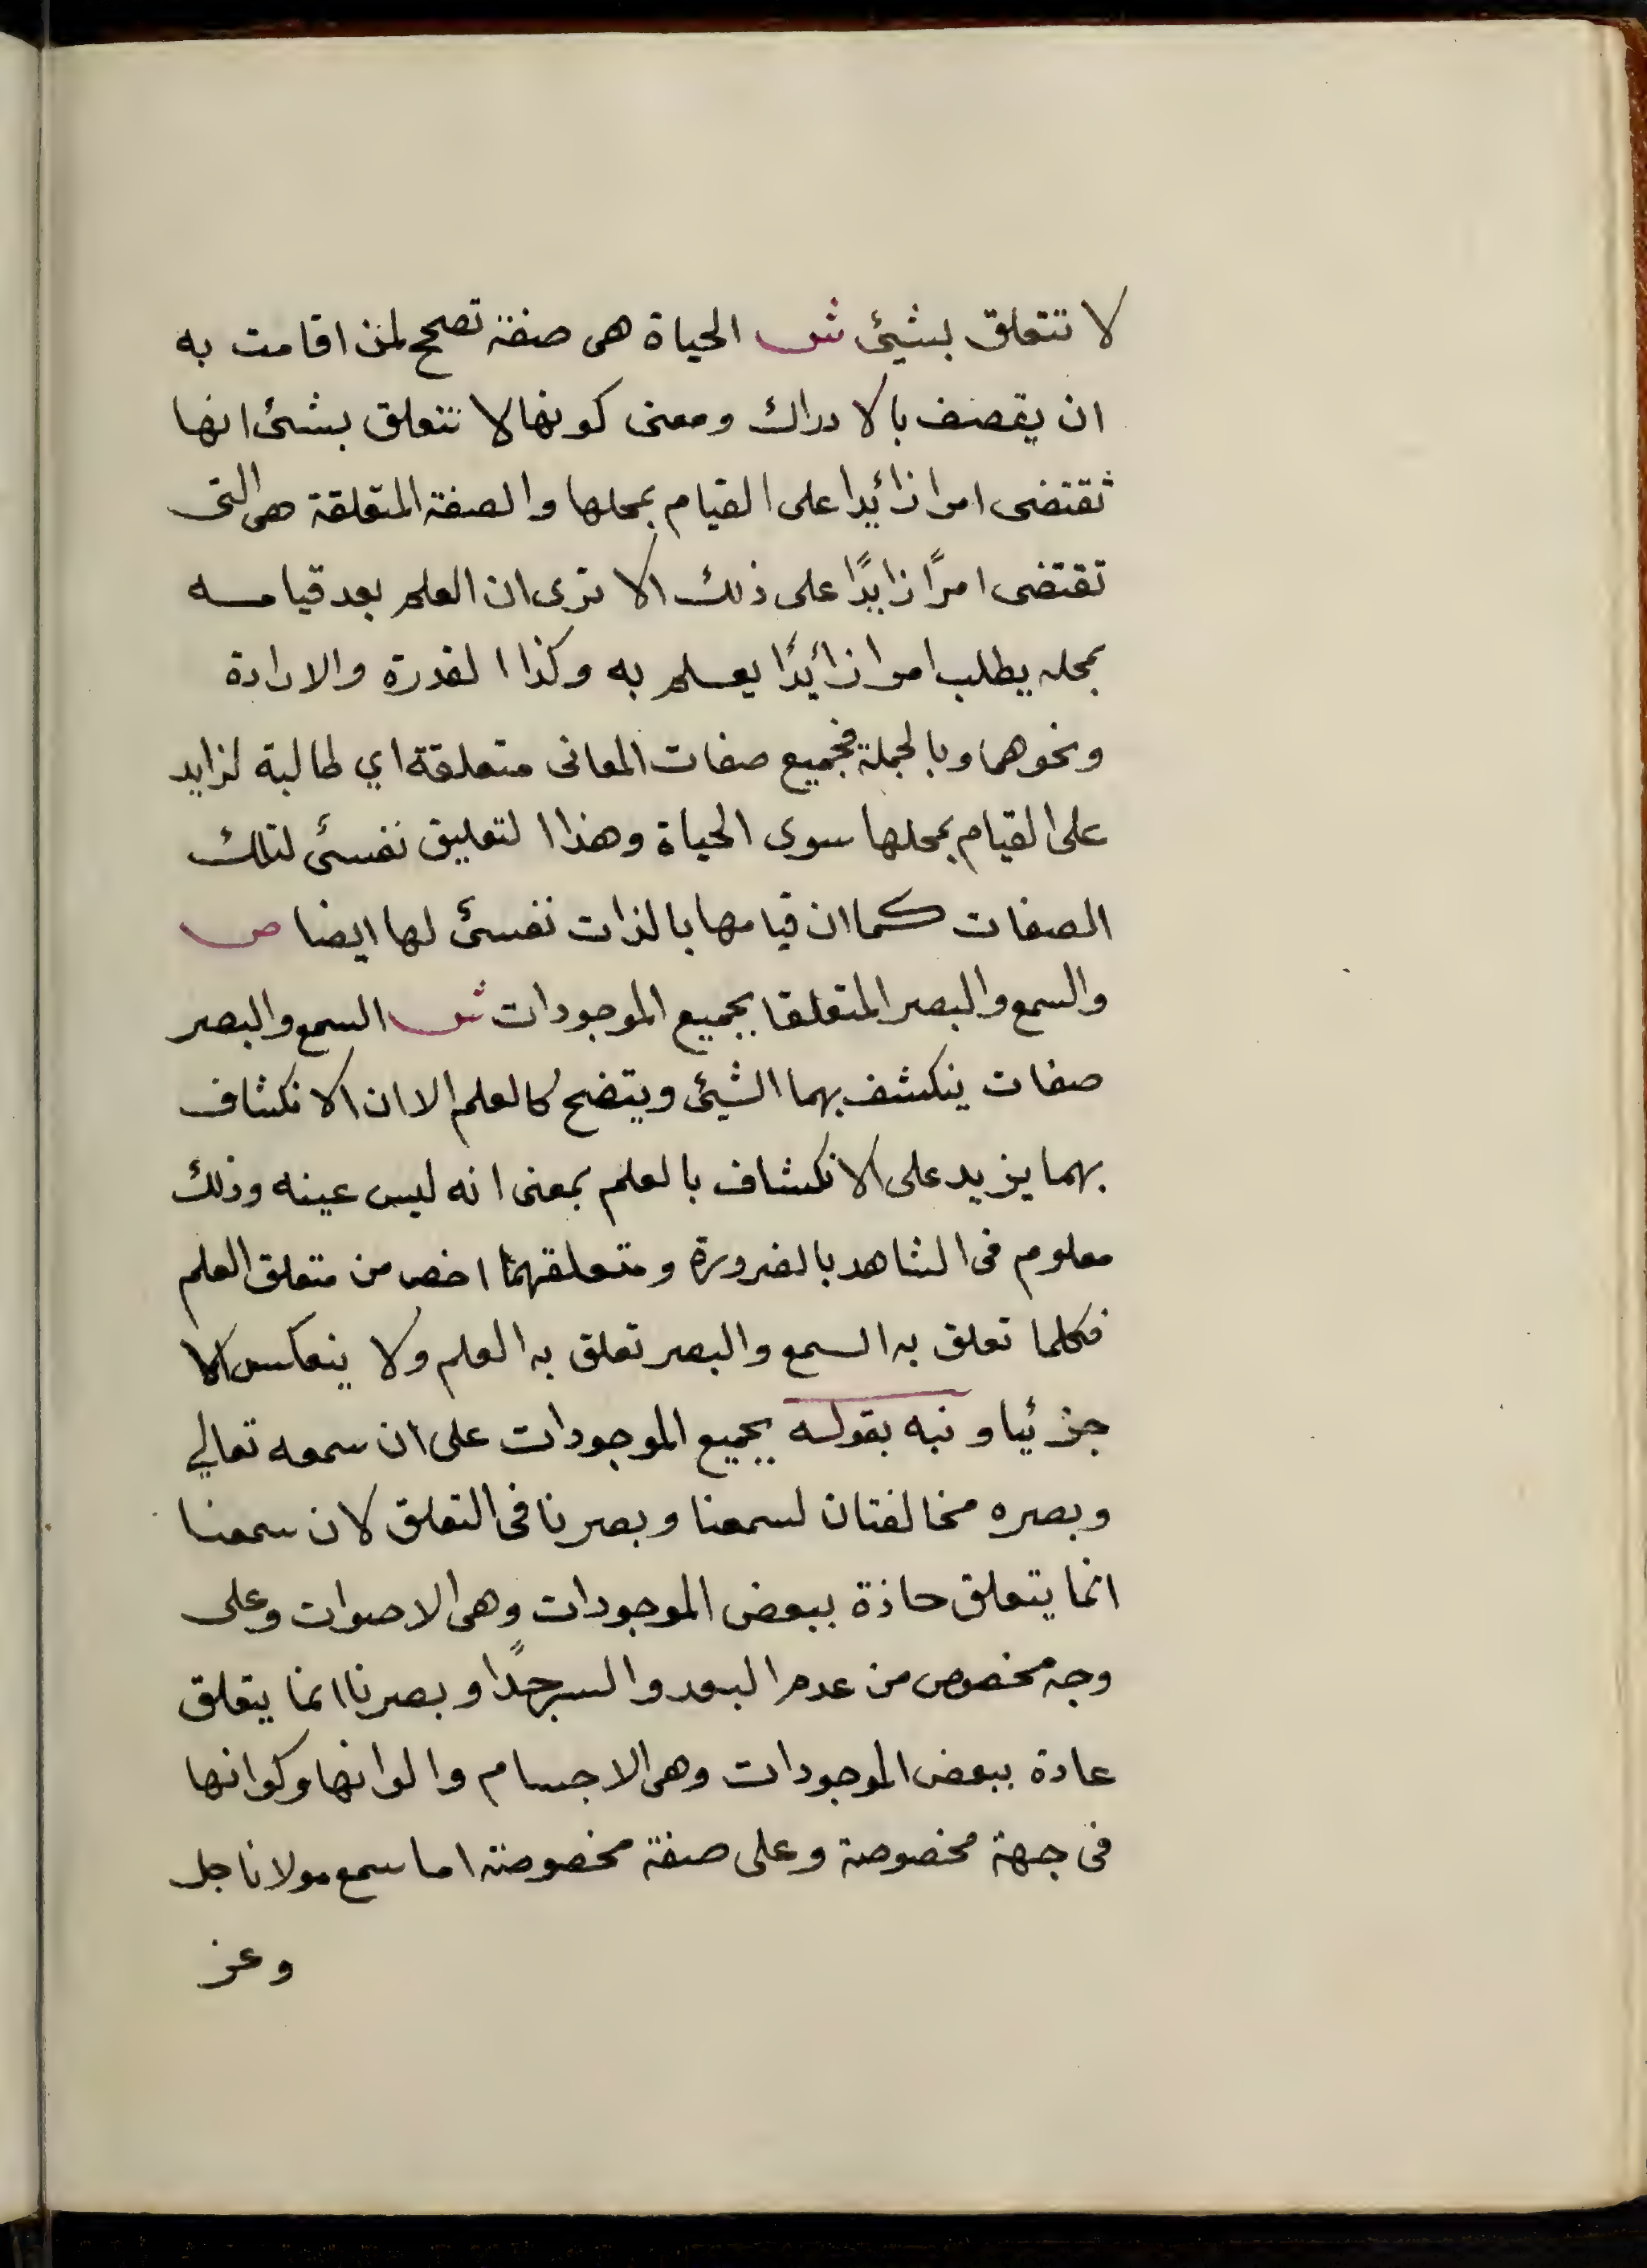 لا تتعلق بشيئ ش الحياة هى صفة تصحح لمن اقامت به
ان يقصف بالادراك ومعنى كونها لا تتعلق بشئ انها
تقتضى امرا زائدا على القيام بمحلها والصفة المتعلقة هى التى
تقتضى امرًا زايدًا على ذلك الا ترى ان العلم بعد قيامه
بمحله يطلب امرا زائدًا يعلم به وكذا القدرة والارادة
ونحوهما وبالجملة فجميع صفات المعانى متعلقة اي طالبة لزايد
على القيام بمحلها سوى الحياة وهذا التعليق نفسئ لتلك
الصفات كما ان قيامها بالذات نفسئ لها ايضا ص
والسمع والبصر المتعلقا بجميع الموجودات ش السمع والبصر
صفات ينكشف بهما الشيئ ويتضح كالعلم الا ان الانكشاف
بهما يزيد على الانكشاف بالعلم بمعنى انه ليس عينه وذلك
معلوم فى الشاهد بالضرورة ومتعلقهما اخص من متعلق العلم
فكلما تعلق به السمع والبصر تعلق به العلم ولا ينعكس الا
جزئيا ونبه بقوله بجميع الموجودات على ان سمعه تعالي
وبصره مخالفتان لسمعنا وبصرنا فى التعلق لان سمعنا
انما يتعلق حاذة ببعض الموجودات وهى الاصوات وعلى
وجه مخصوص من عدم البعد والسر جدًا وبصرنا انما يتعلق
عادة ببعض الموجودات وهى الاجسام والوانها وكوانها
فى جهة مخصوصة وعلى صفة مخصوصة اما سمع مولانا جل
وعز